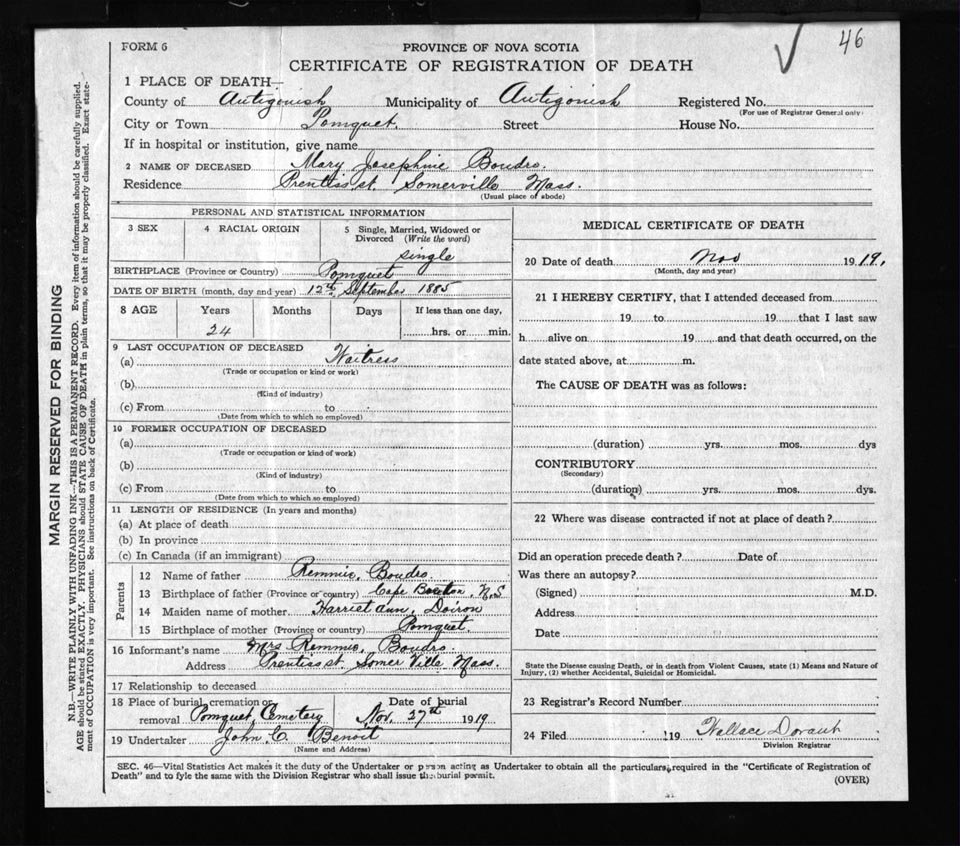 46
FORM 6
PROVINCE OF NOVA SCOTIA
CERTIFICATE OF REGISTRATION OF DEATH
1 PLACE OF DEATH—
County of Antigonish Municipality of Antigonish Registered No.
(For use of Registrar General only)
City or Town Pomquet. Street House No.
If in hospital or institution, give name
2 NAME OF DECEASED Mary Josephine Boudro.
Residence Prentiss st. Somerville Mass.
(Usual place of abode)
PERSONAL AND STATISTICAL INFORMATION
3 SEX 4 RACIAL ORIGIN 5 Single, Married, Widowed or Divorced (Write the word)
single
BIRTHPLACE (Province or Country) Pomquet
DATE OF BIRTH (month, day and year) 12th September 1885
8 AGE Years Months Days If less than one day,
24 hrs. or min.
9 LAST OCCUPATION OF DECEASED
(a) Waitress
(Trade or occupation or kind or work)
(b)
(Kind of industry)
(c) From to
(Date from which to which so employed)
10 FORMER OCCUPATION OF DECEASED
(a)
(Trade or occupation or kind of work)
(b)
(Kind of industry)
(c) From to
(Date from which to which so employed)
11 LENGTH OF RESIDENCE (In years and months)
(a) At place of death
(b) In province
(c) In Canada (if an immigrant)
Parents
12 Name of father Remmie, Boudro
13 Birthplace of father (Province or country) Cape Breton, N.S
14 Maiden name of mother Harriet ann, Doiron
15 Birthplace of mother (Province or country) Pomquet.
16 Informant's name Mrs Remmie, Boudro.
Address Prentiss st. Somer Ville Mass.
17 Relationship to deceased
18 Place of burial, cremation or removal Pomquet, Cemetery Date of burial Nov. 27th 1919
19 Undertaker John C. Benoit
(Name and Address)
MEDICAL CERTIFICATE OF DEATH
20 Date of death Nov 1919,
(Month, day and year)
21 I HEREBY CERTIFY, that I attended deceased from
19 to 19 that I last saw
h alive on 19 and that death occurred, on the
date stated above, at m.
The CAUSE OF DEATH was as follows:
(duration) yrs. mos. dys
CONTRIBUTORY
(Secondary)
(duration) yrs. mos. dys.
22 Where was disease contracted if not at place of death?
Did an operation precede death? Date of
Was there an autopsy?
(Signed) M.D.
Address
Date
State the Disease causing Death, or in death from Violent Causes, state (1) Means and Nature of
Injury, (2) whether Accidental, Suicidal or Homicidal.
23 Registrar's Record Number
24 Filed 19 Wallace
Division Registrar
SEC. 46—Vital Statistics Act makes it the duty of the Undertaker or person acting as Undertaker to obtain all the particulars required in the "Certificate of Registration of
Death" and to fyle the same with the Division Registrar who shall issue the burial permit.
(OVER)
MARGIN RESERVED FOR BINDING
N.B.—WRITE PLAINLY WITH UNFADING INK—THIS IS A PERMANENT RECORD. Every item of information should be carefully supplied.
AGE should be stated EXACTLY. PHYSICIANS should STATE CAUSE OF DEATH in plain terms, so that it may be properly classified. Exact state-
ment of OCCUPATION is very important. See instructions on back of Certificate.